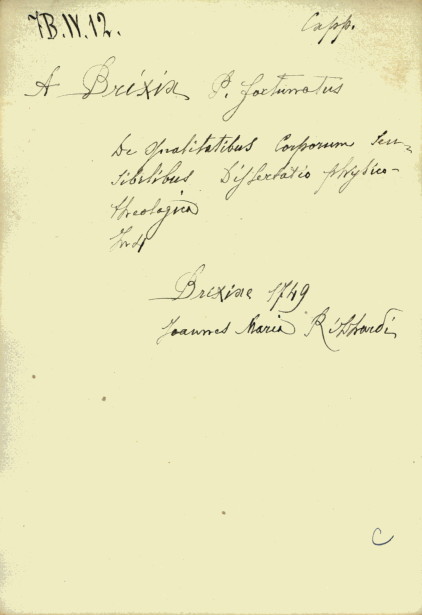 7B.IV.12.
Capp.
A Brixia P. fortunatus
De Qualitatibus Corporum Sen-
sibilibus Dissertatio physico-
theologica
In 4
Brixiae 1749
Joannes Maria Rizzardi
C